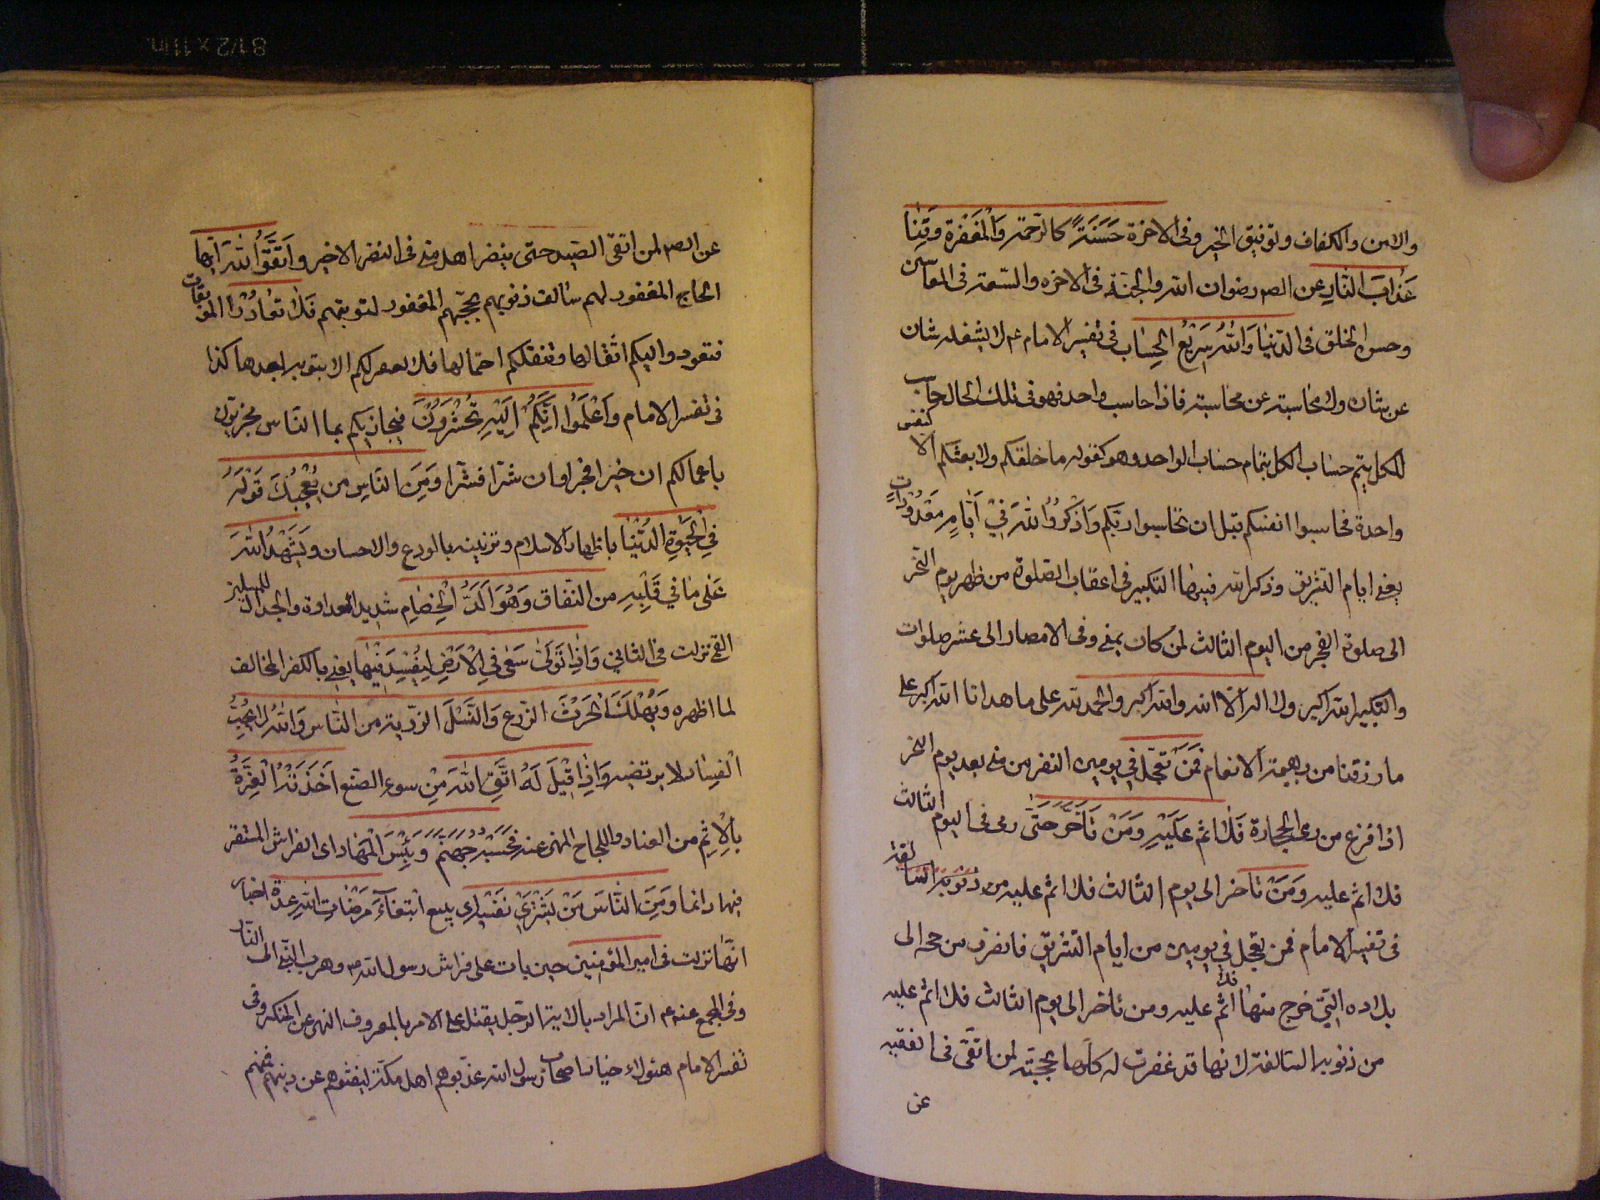 والامن والكفاف وتوفيق الخير وفى الاخرة حَسَنَةً كالرحمة والمغفرة وَقِنَا
عَذَابَ النَّارِ عن الصـ رضوان الله والجنة فى الاخره والسعة فى المعاش
وحسن الخلق فى الدنيا وَاللهُ سَرِيعُ الحِسَابِ فى تفسير الامام ع لا يشغله شان
عن شان ولا محاسبة عن محاسبة فاذا حاسب واحد فهو فى تلك الحال محاسب
للكل يتم حساب الكل بتمام حساب الواحد وهو كقوله ما خلقكم ولا بعثكم الا كنفس
واحدة فحاسبوا انفسكم قبل ان تحاسبوا ربكم وَاذْكُرُوا اللهَ فِي أَيَّامٍ مَعْدُودَاتٍ
يعنى ايام التشريق وذكر الله فيها التكبير فى اعقاب الصلوة من ظهر يوم النحر
الى صلوة الفجر من اليوم الثالث لمن كان بمنى وفى الامصار الى عشر صلوات
والتكبير الله اكبر ولا اله الا الله والله اكبر والحمد لله على ما هدانا الله اكبر على
ما رزقنا من بهيمة الانعام فَمَنْ تَعَجَّلَ فِي يومين النفر من منى بعد يوم النحر
اذا فرغ من رمى الحجارة فَلَا اثم عَلَيْهِ وَمَنْ تَأَخَّرَ حَتَّى رمى فى اليوم الثالث
فلا اثم عليه وَمَنْ تأخر الى يوم الثالث فلا اثم عليه من ذنوبه السالفة
فى تفسير الامام فمن تعجل فى يومين من ايام التشريق فانصرف من حجه الى
بلاده التى خرج منها فلا اثم عليه ومن تأخر الى يوم الثالث فلا اثم عليه
من ذنوبه السالفة لانها قد غفرت له كلها بحجته لمن اتقى فى الفقيه
عن
عن الصـ لمن اتقى الصيد حتى ينفر اهل منى فى النفر الاخير وَاتَّقُوا اللهَ ايها
الحاج المغفور لهم سالف ذنوبهم بحجهم المغفور لتوبتهم فلا تعاودوا الموبقات
فتعود واليكم اثقالها وتثقلكم احتمالها فلا يغفر لكم الا بتوبة بعدها كذا
فى تفسير الامام وَاعْلَمُوا انَّكُمْ إلَيْهِ تُحْشَرُونَ فيجازيكم بما الناس مجزيون
باعمالكم ان خيرا فخيرا وان شرا فشرا وَمِنَ النَّاسِ من يُعْجِبُكَ قَوْلُهُ
فِي الْحَيَوٰةِ الدُّنْيَا باظهار الاسلام وتزيينه بالورع والاحسان وَيُشْهِدُ اللهَ
عَلَى مَا فِي قَلْبِهِ من النفاق وَهُوَ أَلَدُّ الْخِصَامِ شديد العداوة والجدال للمسلمين
القمى نزلت فى الثانى وَاِذَا تَوَلَّى سَعَى فِي الْأَرْضِ لِيُفْسِدَ فِيهَا يعنى بالكفر المخالف
لما اظهره وَيُهْلِكَ الْحَرْثَ الزرع وَالنَّسْلَ الذرية من الناس وَاللهُ لا يُحِبُّ
الْفَسَادَ لا يرتضيه وَاِذَا قِيلَ لَهُ اتَّقِ اللهَ مِنْ سوء الصنع اَخَذَتْهُ الْعِزَّةُ
بِالْاِثْمِ من العناد واللجاج المنهى عنه فَحَسْبُهُ جَهَنَّمُ وَبِئْسَ الْمِهَادُ اى الفراش المستقر
فيها دائما وَمِنَ النَّاسِ مَنْ يَشْرِي نَفْسَهُ اى يبيع ابْتِغَاءَ مَرْضَاتِ اللهِ عدة اخبار
انها نزلت فى امير المؤمنين حين بات على فراش رسول الله ص وهرب النبى الى الغار
وفى المجمع عنه ع ان المراد بالاية الرجل يقتل على الامر بالمعروف والنهى عن المنكر وفى
تفسير الامام هؤلاء خيار اصحاب رسول الله عذبوهم اهل مكة ليفتنوهم عن دينهم فمنهم